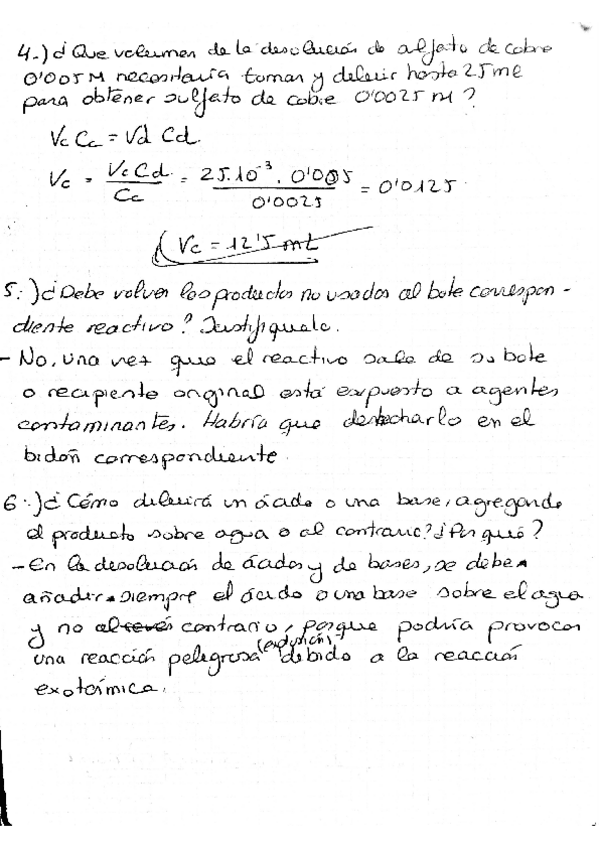 4.-) ¿Que volumen de la desolución de sulfato de cobre
0'005M necesitaría tomar y diluir hasta 25ml
para obtener sulfato de cobre 0'0025 M?
Vc Cc = Vd Cd.
Vc = Vc Cd / Cc = 25.10⁻³ . 0'005 / 0'0025 = 0'0125
Vc = 12'5 ml
5.-) ¿Debe volver los productos no usados al bote correspon-
diente reactivo? Justifiquelo.
- No, una vez que el reactivo sale de su bote
o recipiente original está expuesto a agentes
contaminantes. Habría que desecharlo en el
bidón correspondiente.
6.-) ¿Cómo diluirá un ácido o una base, agregando
el producto sobre agua o al contrario? ¿Por qué?
- En la desolución de ácidos y de bases, se debe
añadir siempre el ácido o una base sobre el agua
y no al revés contrario, porque podría provocar
una reacción peligrosa (explosión) debido a la reacción
exotérmica.